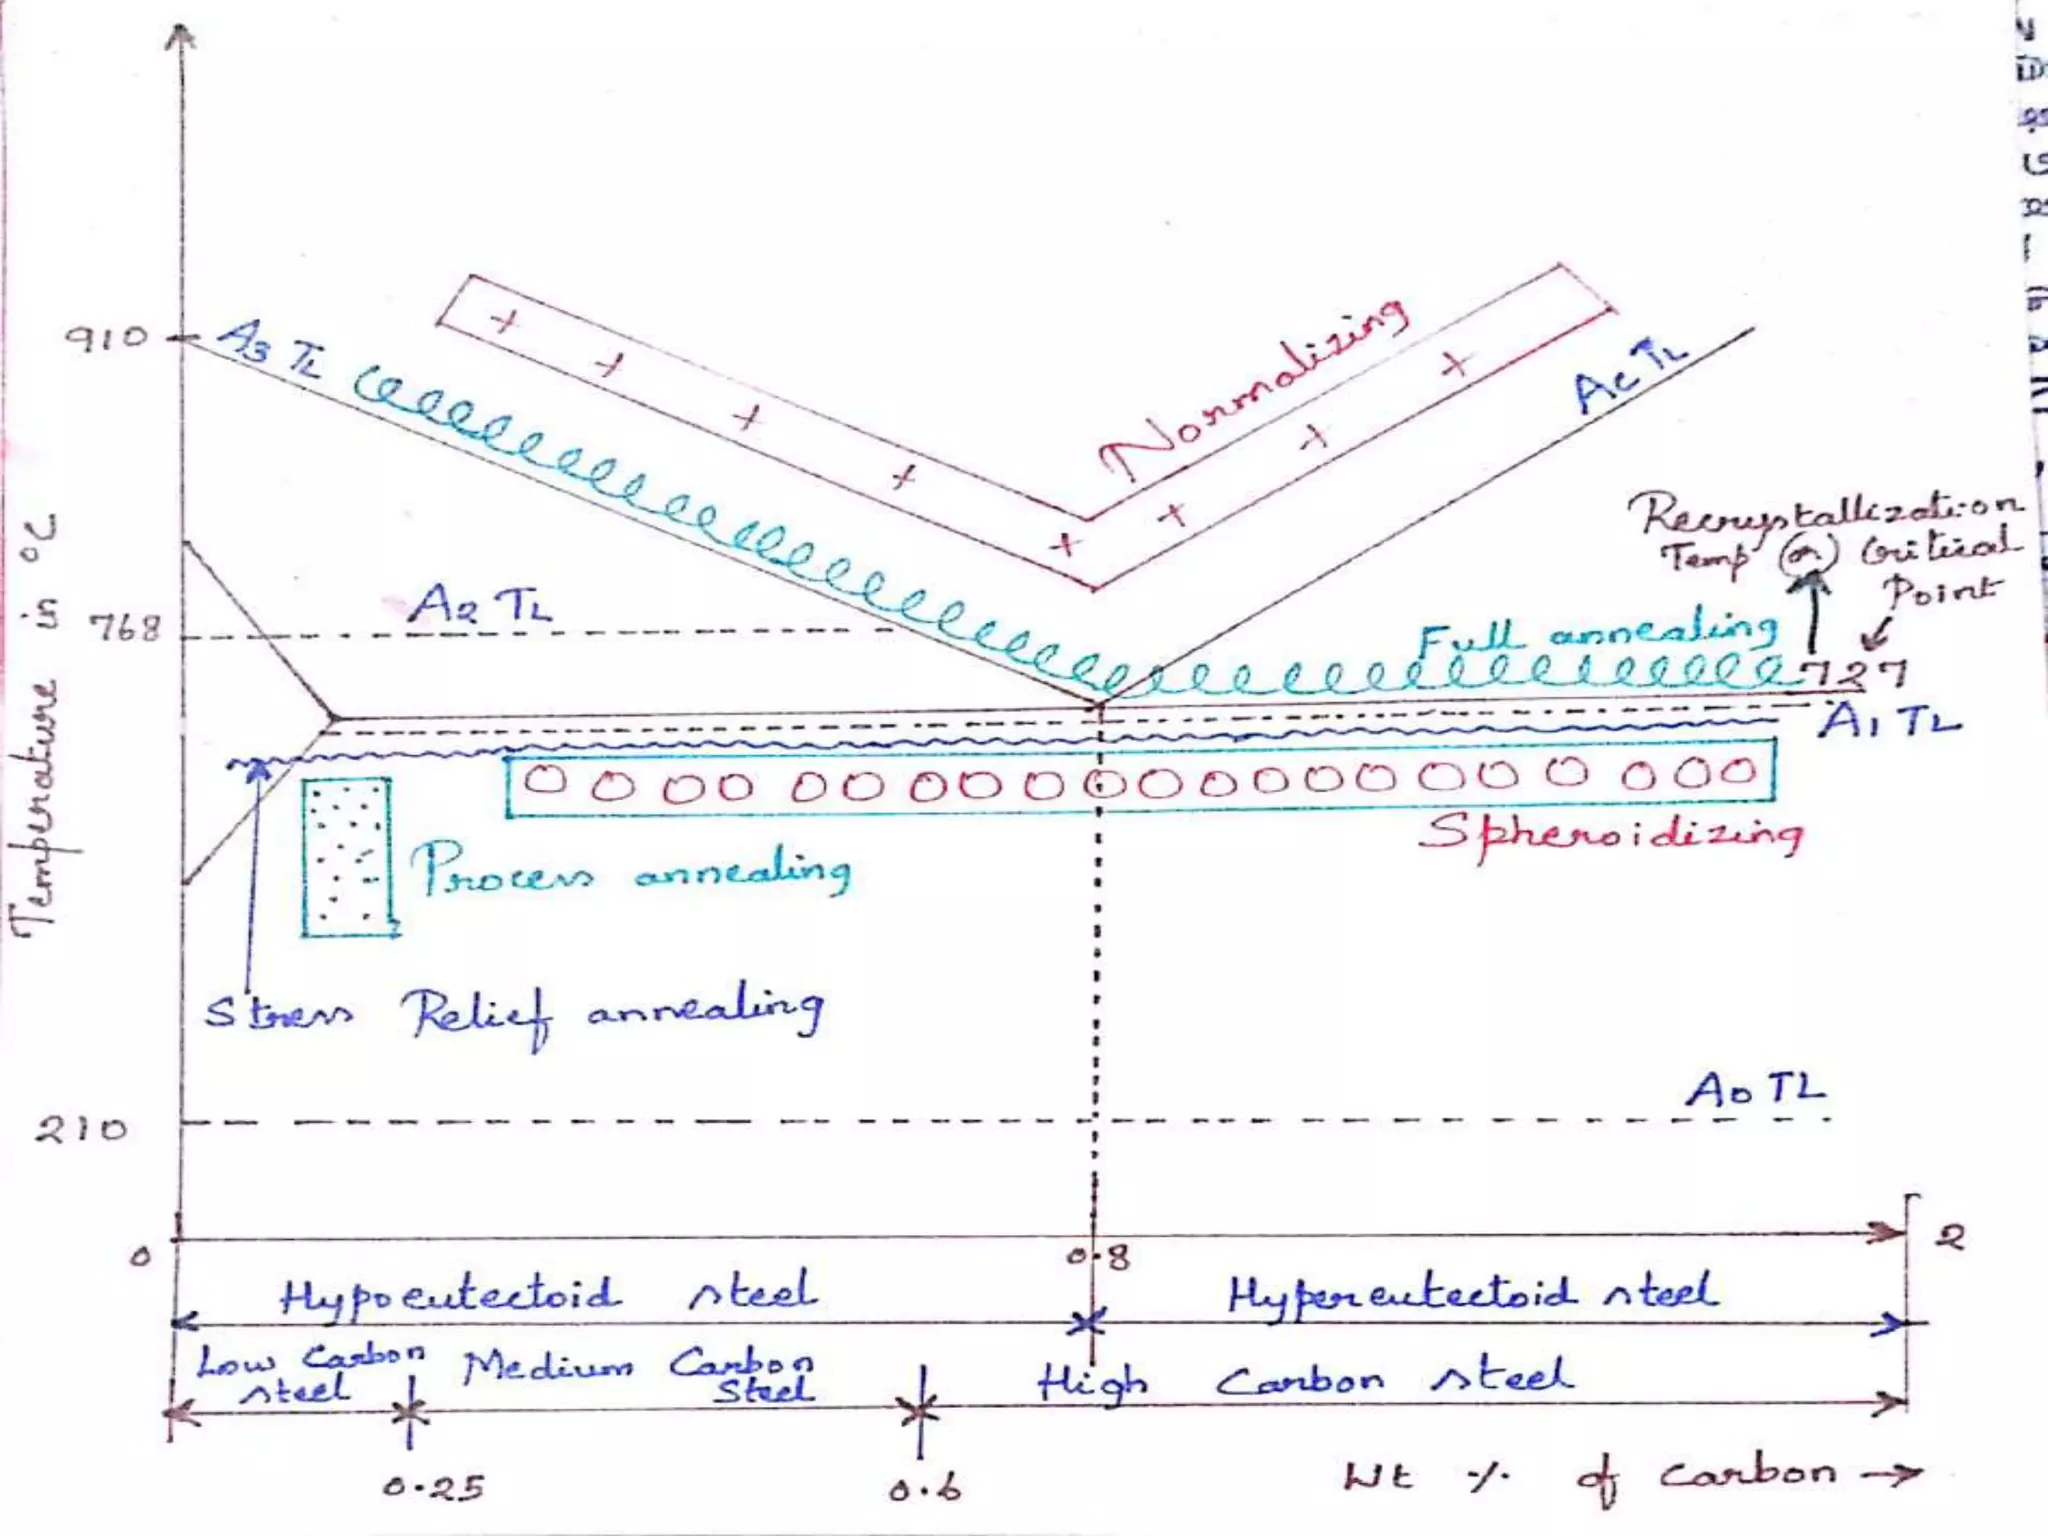 910
A3 TL
Normalizing
Ac TL
Recrystallization
Temp (or) Critical
Point
Temperature in °C
768
A2 TL
Full annealing
727
A1 TL
Spheroidizing
Process annealing
Stress Relief annealing
A0 TL
210
0
0.8
2
Hypoeutectoid steel
Hypereutectoid steel
Low Carbon
steel
Medium Carbon
Steel
High Carbon steel
0.25
0.6
Wt % of Carbon →